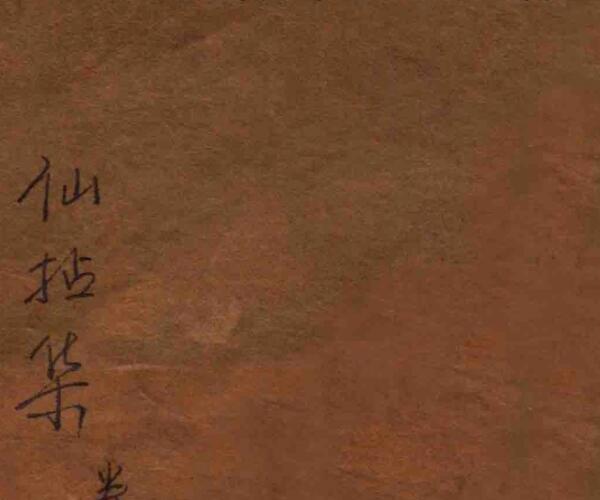 仙拈集